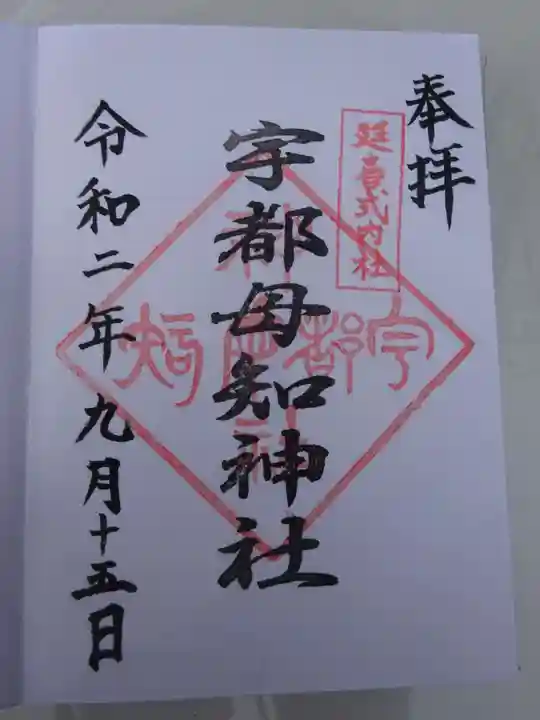 奉拝
延喜式内社
宇都母知神社
令和二年九月十五日